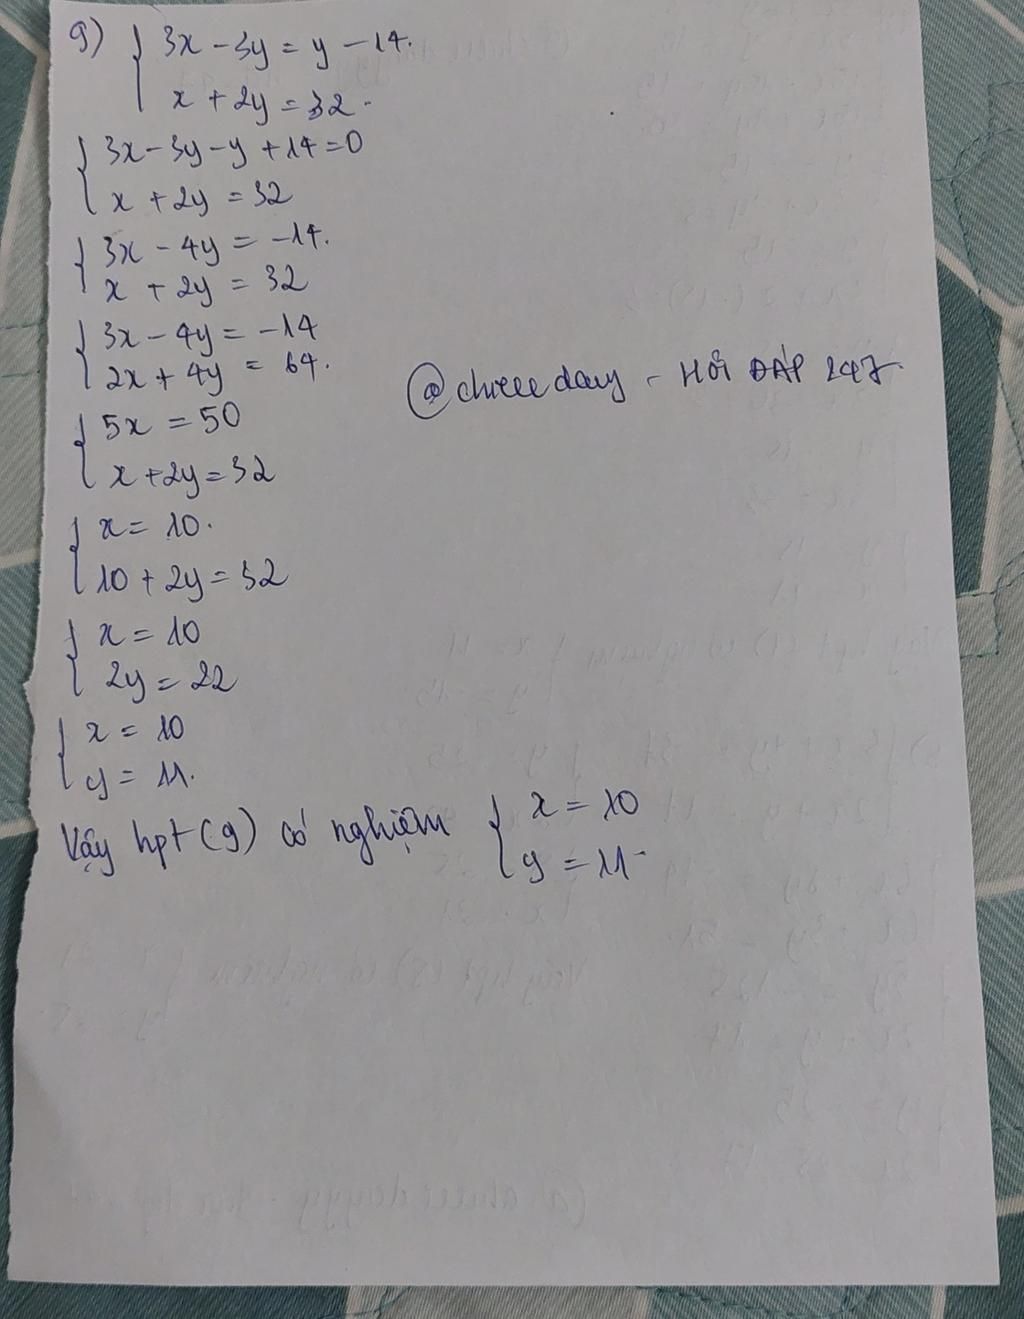 9) { 3x - 3y = y - 14.
x + 2y = 32.
{ 3x - 3y - y + 14 = 0
x + 2y = 32
{ 3x - 4y = -14.
x + 2y = 32
{ 3x - 4y = -14
2x + 4y = 64.
@chieee day - HỎI ĐÁP 247.
{ 5x = 50
x + 2y = 32
{ x = 10.
10 + 2y = 32
{ x = 10
2y = 22
{ x = 10
y = 11.
Vậy hpt (9) có nghiệm { x = 10
y = 11.